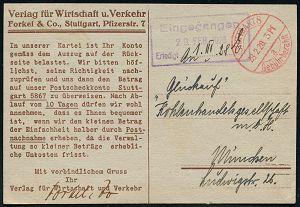 Verlag für Wirtschaft u. Verkehr
Forkel & Co., Stuttgart, Pfizerstr. 7
In unserer Kartei ist Ihr Konto
gegen das aus dem Auszug auf der Rück-
seite belastet. Wir bitten höf-
lichst, seine Richtigkeit nach-
zuprüfen und uns dann den Betrag
auf unser Postscheckkonto Stutt-
gart 5867 zu überweisen. Nach Ab-
lauf von 10 Tagen dürfen wir wohl
annehmen, dass es Ihnen bequemer
ist, wenn wir den kleinen Betrag
der Einfachheit halber durch Post-
nachnahme erheben, da die Verwal-
tung so kleiner Beträge erhebli-
che Unkosten frisst.
Mit verbindlichem Gruss
Ihr
Verlag für Wirtschaft und Verkehr
Eingegangen
Erledigt
"Glückauf"
Kohlenhandelsgesellschaft
m.b.H.
München
Ludwigstr.